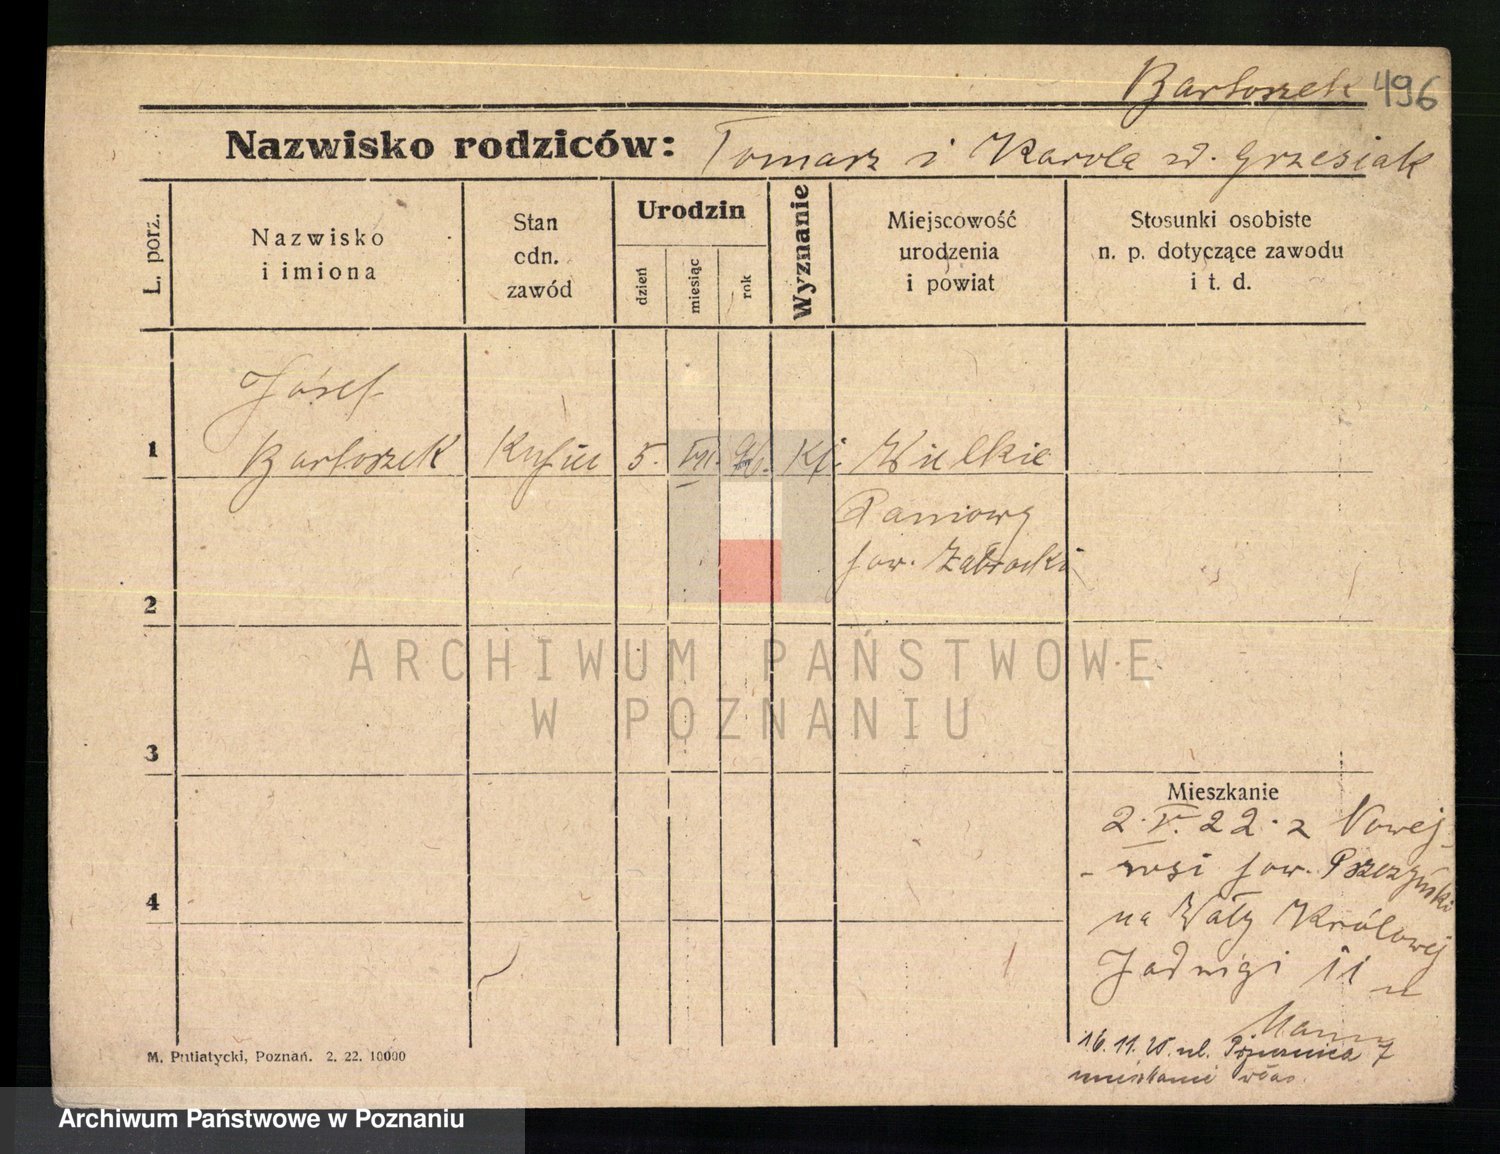 Bartoszek 496
Nazwisko rodziców: Tomasz i Karola z d. Grzesiak
L. porz.
Nazwisko
i imiona
Stan
cdn.
zawód
Urodzin
dzień
miesiąc
rok
Wyznanie
Miejscowość
urodzenia
i powiat
Stosunki osobiste
n. p. dotyczące zawodu
i t. d.
Józef
1 Bartoszek Kupiec 5. VII. Kf. Wielkie
Paniowy
pow. Zabrocki
2
3
Mieszkanie
2. V. 22. z Nowej-
-wsi pow. Pszczyński
4
na Wały Królowej
Jadwigi 11 u
16. 11. 25. ul. 7
mieszkanie
M. Putiatycki, Poznań. 2. 22. 10000
ARCHIWUM PAŃSTWOWE
W POZNANIU
Archiwum Państwowe w Poznaniu